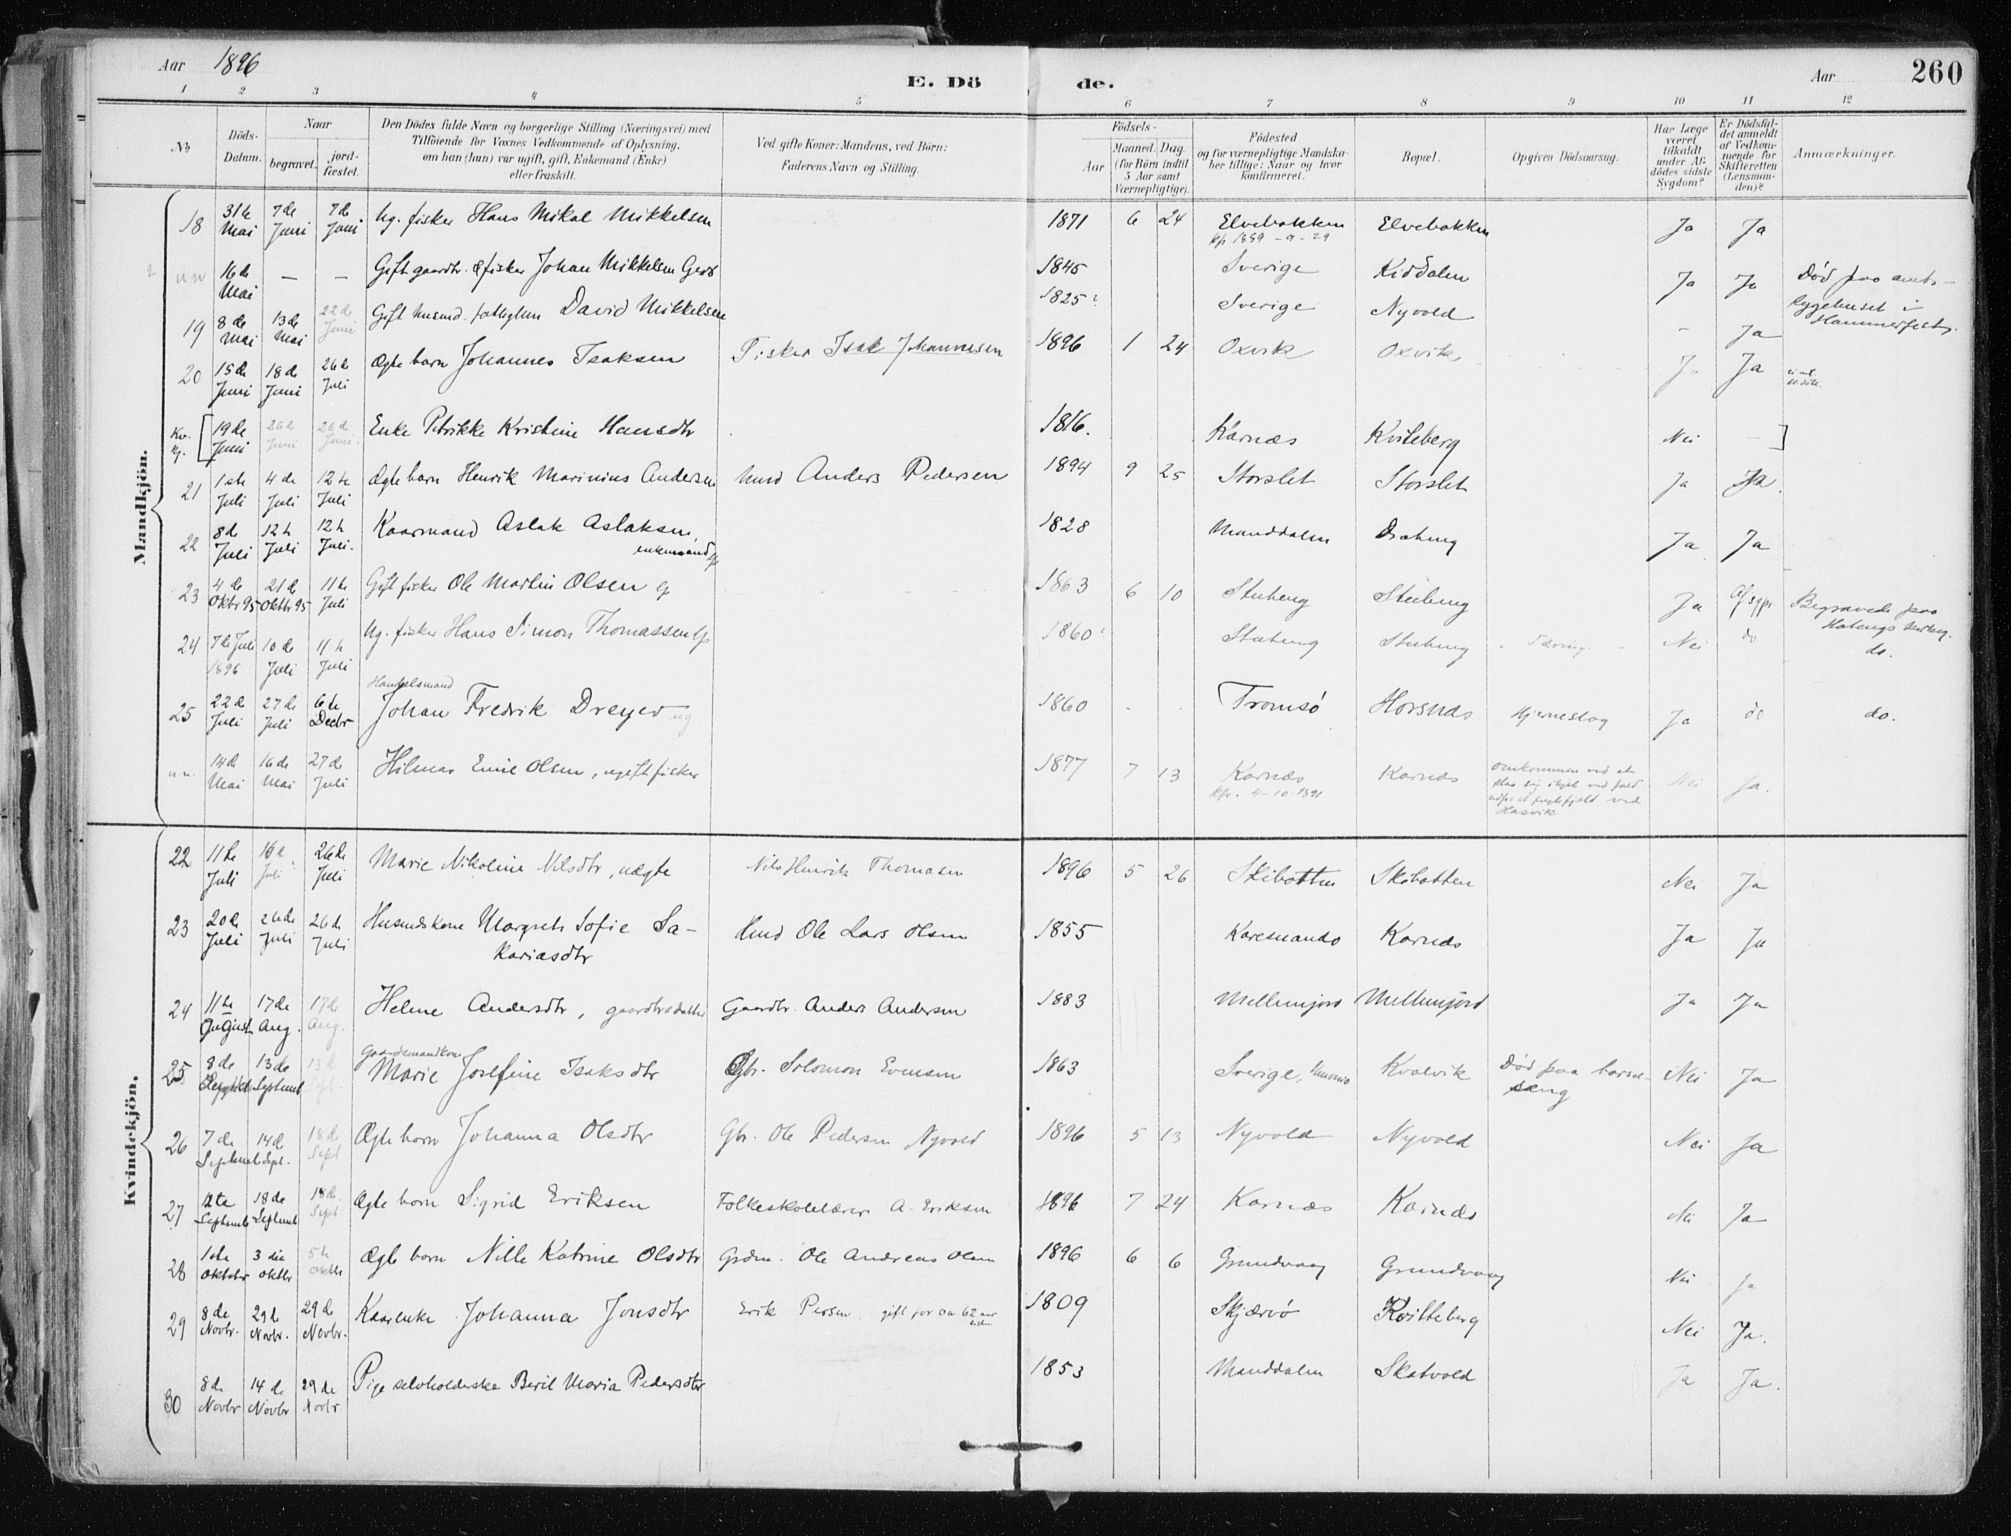 Aar 1896 E. Döde. Aar 260
1 2 3 4 5 6 7 8 9 10 11 12
№ Döds-Datum. Naar begravet. jord-fæstet.
Den Dödes fulde Navn og borgerlige Stilling (Næringsvei) med
Tilföiende for Voxnes Vedkommende af Oplysning,
om han (hun) var ugift, gift, Enkemand (Enke)
eller fraskilt.
Ved gifte Koner: Mandens, ved Börn:
Faderens Navn og Stilling.
Födsels-
Aar Maaned. Dag.
(for Börn indtil
5 Aar samt
Værnepligtige).
Födested
og for værnepligtige Mandska-
ber tillige: Naar og hvor
konfirmeret.
Bopæl.
Opgiven Dödsaarsag.
Har Læge
været
tilkaldt
under Af-
dödes sidste
Sygdom?
Er Dödsfal-
det anmeldt
af Vedkom-
mende for
Skifteretten
(Lensman-
den)?
Anmærkninger.
Mandkjön.
18 31te Mai 7de Juni 7de Juni Ug. fisker Hans Mikal Mikkelsen 1871 6 24 Elvebakken Elvebakken Ja Ja
16de Mai — — Gift gaardbr. & fisker Johan Mikkelsen 1845 Sverige Kiddalen Ja Ja Død paa amts-
sygehuset i
Hammerfest.
19 8de Mai 13de Mai 22de Juni Gift husmd. David Mikkelsen 1825? Sverige Nyvold - Ja
20 15de Juni 18de Juni 26de Juli Ægte barn Johannes Isaksen Fisker Isak Johannesen 1896 1 24 Oxvik Oxvik Ja Ja
Kv. kj. [19de Juni 26de Juni 26de Juni Enke Petrikke Kristine Hansdtr 1816. Karnæs Kviteberg Nei - ]
21 1ste Juli 4de Juli 12te Juli Ægte barn Henrik Marinius Andersen Anders Pedersen 1894 9 25 Storslet Storslet Ja Ja.
22 8de Juli 12te Juli 12te Juli. Kaarmand Aslak Aslaksen, 1828 Manddalen Ja Ja
enkemand
23 4de Oktr 95 21de Oktbr 95 11te Juli Gift fisker Ole Martin Olsen 1863 6 10 Stubeng Stubeng Ja Begravede paa
24 7de Juli 1896 10de Juli 11te Juli Ug. fisker Hans Simon Thomassen 1860? Stubeng Stubeng Tæring Nei do do.
Handelsmand
25 22de Juli 27de Juli 6te Decbr Johan Fredrik Dreyer ug 1860 Tromsø Horsnæs Hjerneslag Ja do do.
14de Mai 16de Mai 27de Juli Hilmar Emil Olsen, ugift fisker 1877 7 13 Karnæs Karnæs omkommen ved at
slaa sig ihjel ved fald
ved
Hasvik Nei Ja.
kfr. 4-10-1891
Kvindekjön.
22 11te Juli 16de Juli 26de Juli Marie Nikoline Nilsdtr, uægte Nils Henrik Thomasen 1896 5 26 Skibotten Skibotten Nei Ja
23 20de Juli 26de Juli 26de Juli Husmdskone Margreth Sofie Sa-
kariasdtr Husmd Ole Lars Olsen 1855 Karesuando Karnæs Ja Ja
24 11te August 17de Aug. 17de Aug. Helene Andersdtr, gaardbrdatter Gaardbr. Anders Andersen 1883 Mellemjord Mellemjord Ja Ja
Gaardmandkone
25 8de Septembr 13de Septembr 13de Sept. Marie Josefine Isaksdtr Gbr. Solomon Evensen 1863 Sverige, Muonio Kvalvik Død paa barsel-
seng Nei Ja
26 7de Septembr 14de Sept. 18de Sept Ægte barn Johanna Olsdtr Gbr. Ole Pedersen Nyvold 1896 5 13 Nyvold Nyvold Nei Ja
27 12te Septembr 18de Septembr 18de Sept Ægte barn Sigrid Eriksen Folkeskolelærer A. Eriksen 1896 7 24 Karnæs Karnæs Nei Ja
28 1ste Oktober 3die Oktbr 5te Oktbr Ægte barn Nille Katrine Olsdtr Grdm. Ole Andreas Olsen 1896 6 6 Grundvaag Grundvaag Nei Ja
29 8de Novbr. 29de Novbr. 29de Novbr. Kaarenke Johanna Jonsdtr Erik Persen gift for ca 62 aar siden 1809 Skjærvø Kvitteberg Nei Ja.
30 8de Novbr 14de Novbr 29de Novbr Pige selvholderske Beril Maria Pedersdtr 1853 Manddalen Skatvold Ja Ja.